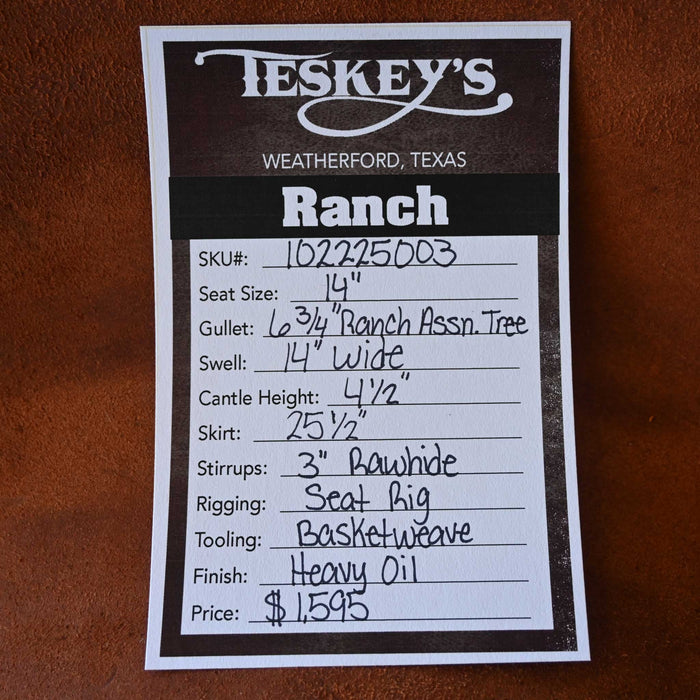 TESKEY'S
WEATHERFORD, TEXAS
Ranch
SKU#: 102225003
Seat Size: 14"
Gullet: 6 3/4" Ranch Assn. Tree
Swell: 14" Wide
Cantle Height: 4 1/2"
Skirt: 25 1/2"
Stirrups: 3" Rawhide
Rigging: Seat Rig
Tooling: Basketweave
Finish: Heavy Oil
Price: $1,595